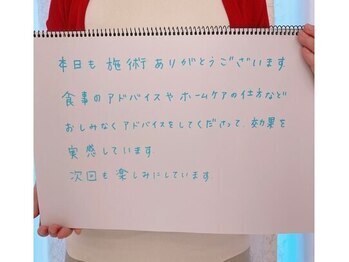 本日も施術ありがとうございます
食事のアドバイスやホームケアの仕方など
おしみなくアドバイスをしてくださって、効果を
実感しています。
次回も楽しみにしています。